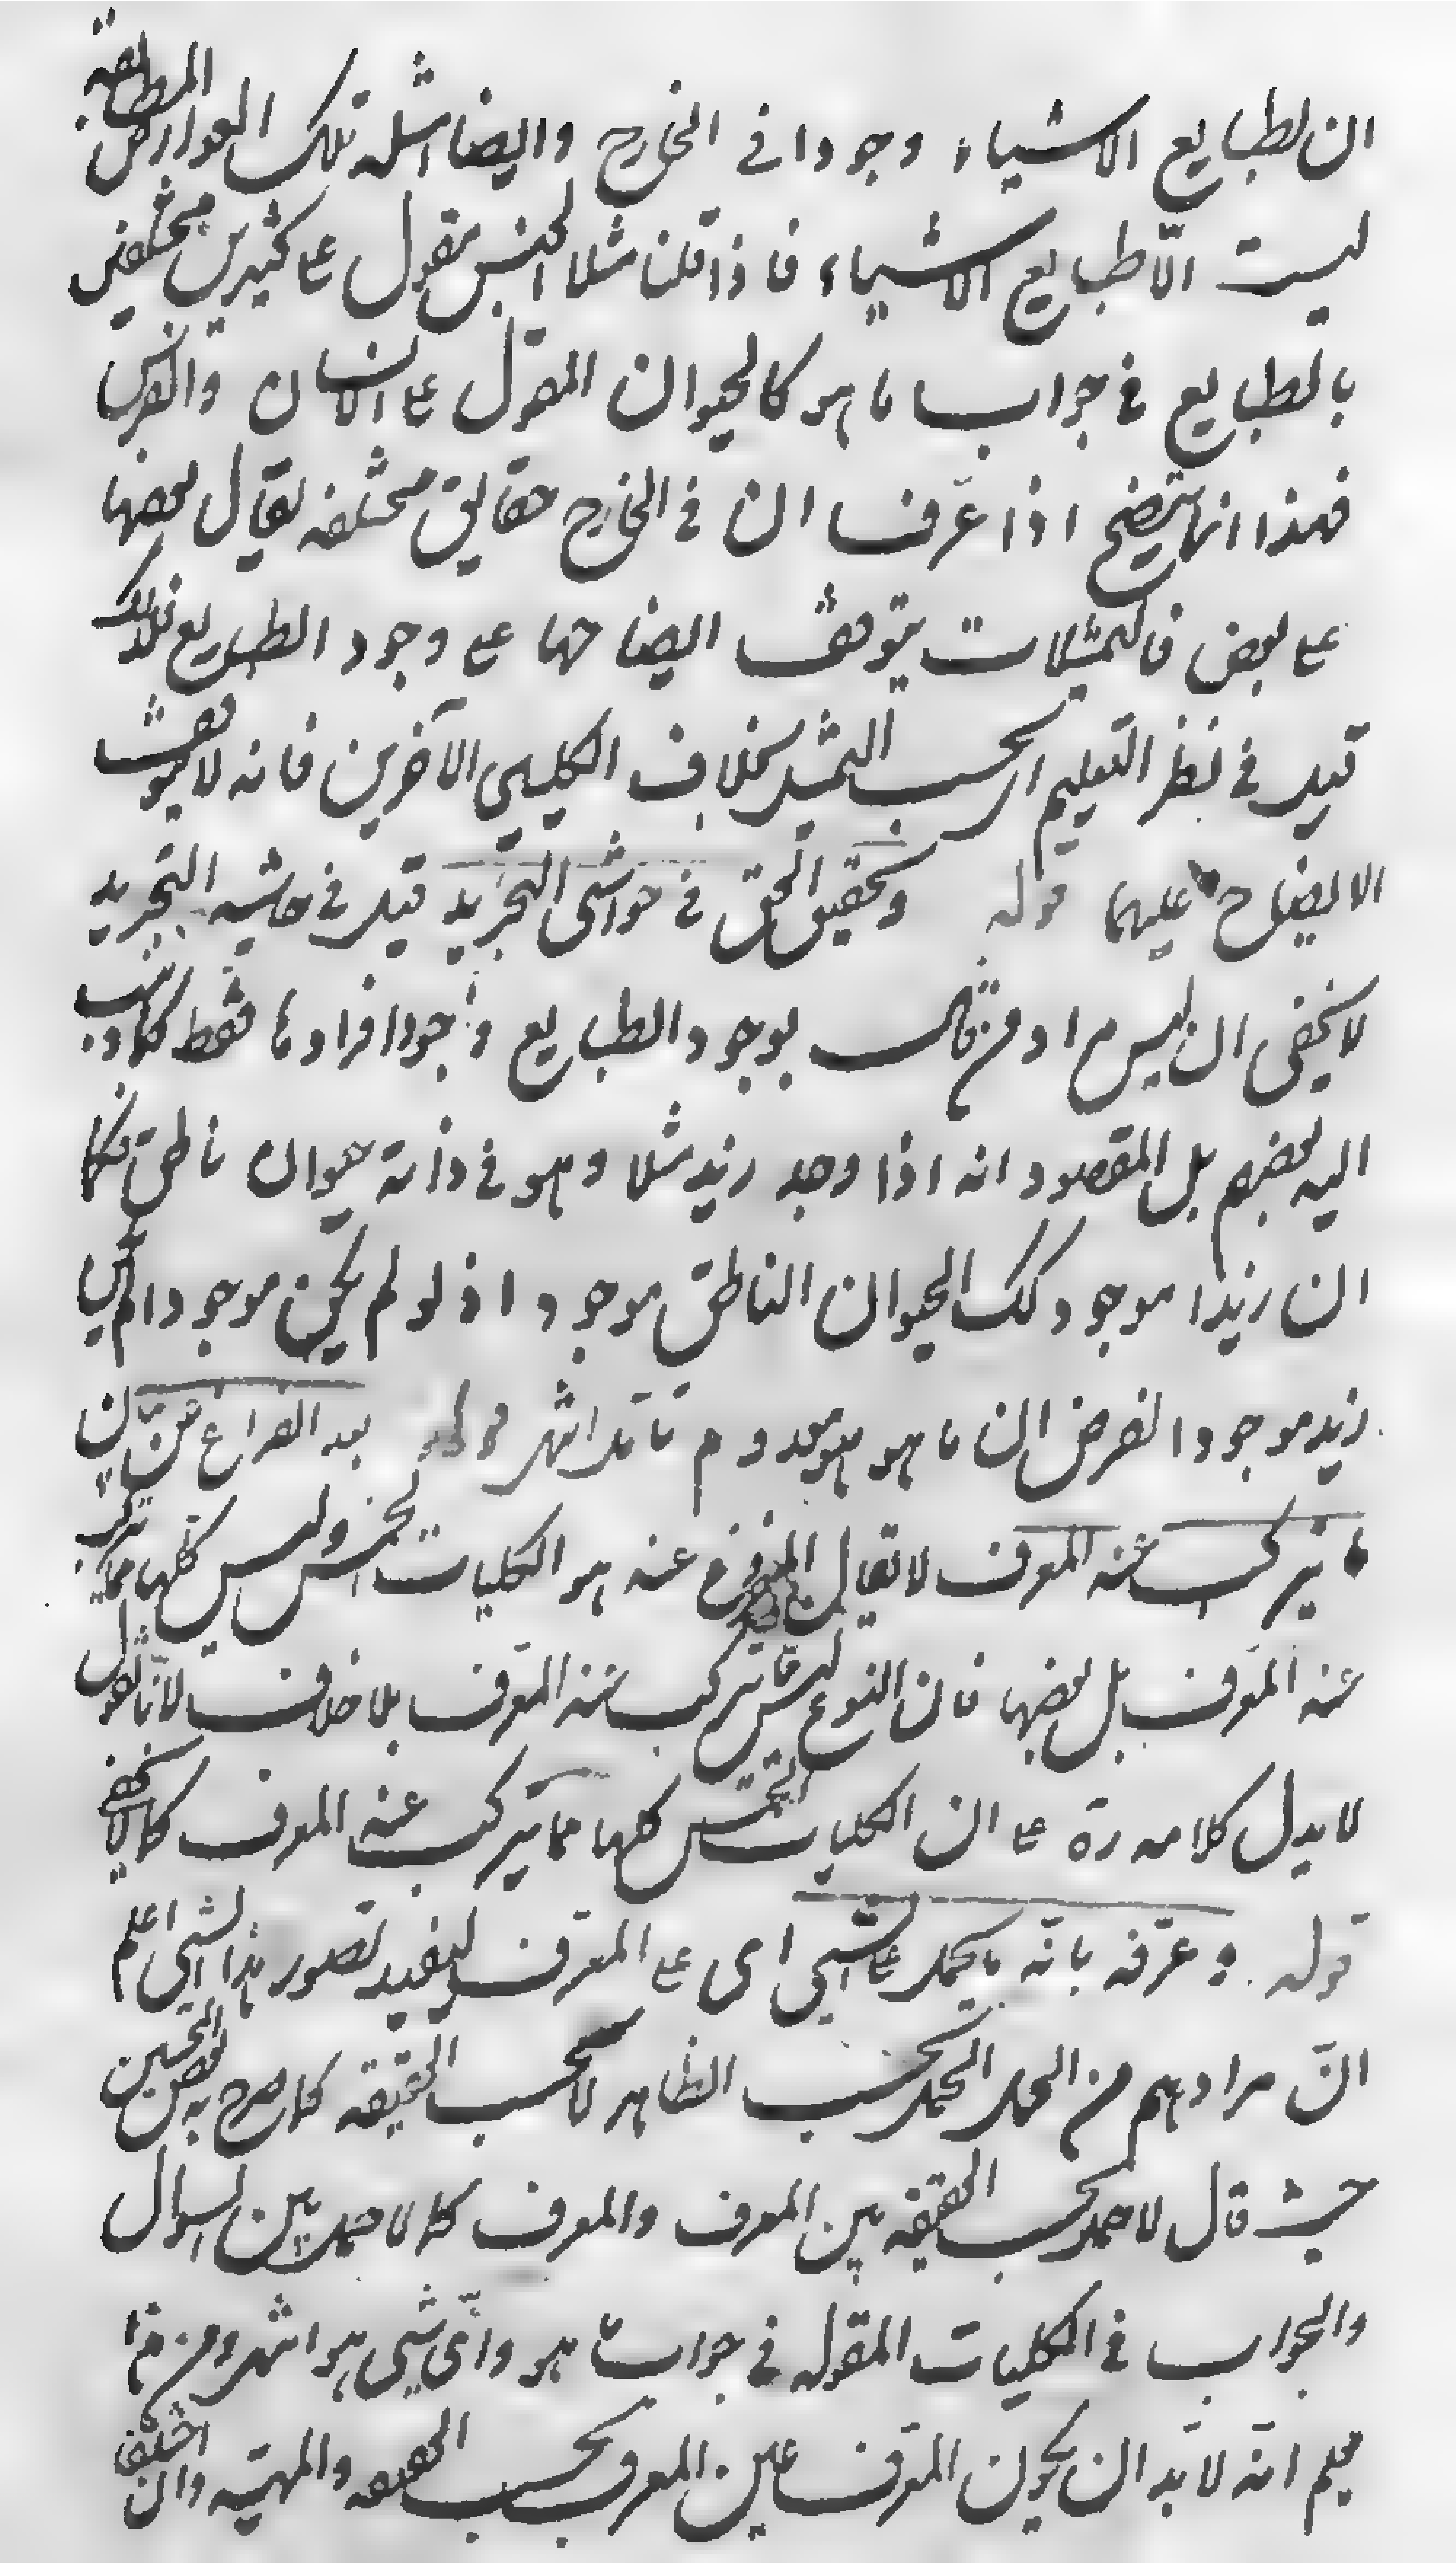 ان لطبايع الاشياء وجودا في الخارج وايضا امثلة تلك العوارض المنطقية
ليست الّا طبايع الاشياء فاذا قلنا مثلا الجنس مقول على كثيرين مختلفين
بالطبايع في جواب ما هو كالحيوان المقول على الانسان والفرس
فهذا انما يتضح اذا عرف ان في الخارج حقايق مختلفه يقال بعضها
على بعض فالتمثيلات يتوقف ايضاحها على وجود الطبايع فلذلك
قيل في نظر التعليم اى بحسب التمثيل بخلاف الكليين الآخرين فانه لا يتوقف
الايضاح عليهما قوله وتحقيق الحق في حواشي التجريد قيل في حاشيه التجريد
لا يخفى ان ليس مراد من قال بوجود الطبايع وجود افرادها فقط كما ذهب
اليه بعضهم بل المقصود انه اذا وجد زيد مثلا وهو في ذاته حيوان ناطق فكما
ان زيدا موجود كك الحيوان الناطق موجود اذ لو لم يكن موجودا لم يكن
زيد موجودا لفرض ان ما هو هو معدوم تأمّل انتهى قوله بعد الفراغ من بيان
ما يتركب عنه المعرف لا يقال المفروغ عنه هو الكليات الخمس وليس كلها مما يتركب
عنه المعرّف بل بعضها فان النوع ليس مما يتركب عنه المعرّف بلا خلاف لانّا نقول
لا يدل كلامه ره على ان الكليات الخمس كلها مما يتركب عنه المعرف كما لا يخفى
قوله وعرّفه بانّه ما يحمل على الشئ اى على المعرّف ليفيد تصور هذا الشئ اعلم
انّ مرادهم من الحمل الحمل بحسب الظاهر لا بحسب الحقيقه كما صرح به بعض المحققين
حيث قال لا حمل بحسب الحقيقه بين المعرف والمعرف كما لا حمل بين السوال
والجواب في الكليات المقوله في جواب ما هو وايّ شي هو انتهى ومن هذا
يعلم انّه لا بد ان يكون المعرّف عين المعرف بحسب الحقيقه والمهيّه وان اختلفا